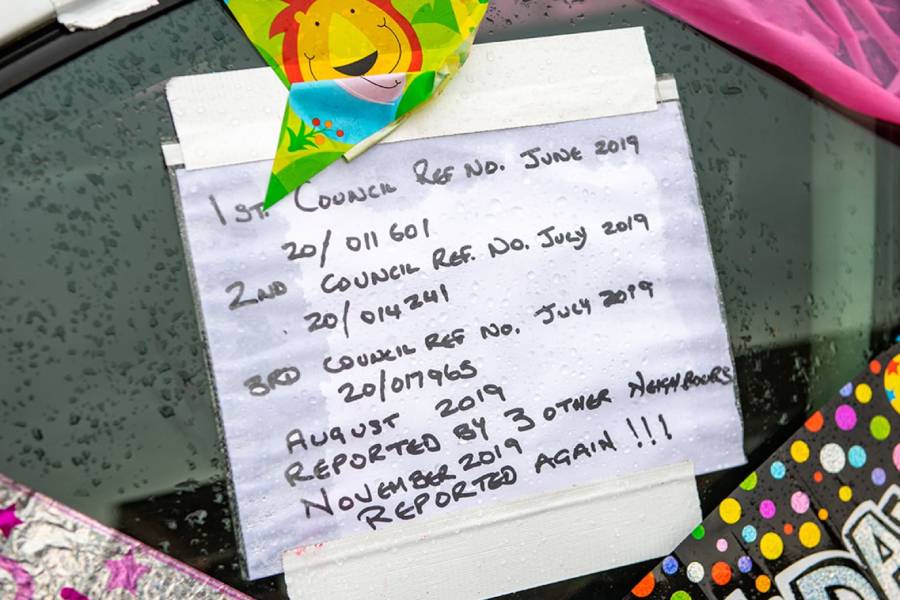 1ST. COUNCIL REF NO. JUNE 2019
20/011601
2ND COUNCIL REF. NO. JULY 2019
20/014241
3RD COUNCIL REF NO. JULY 2019
20/017965
AUGUST 2019
REPORTED BY 3 OTHER NEIGHBOURS
NOVEMBER 2019
REPORTED AGAIN !!!
DAY